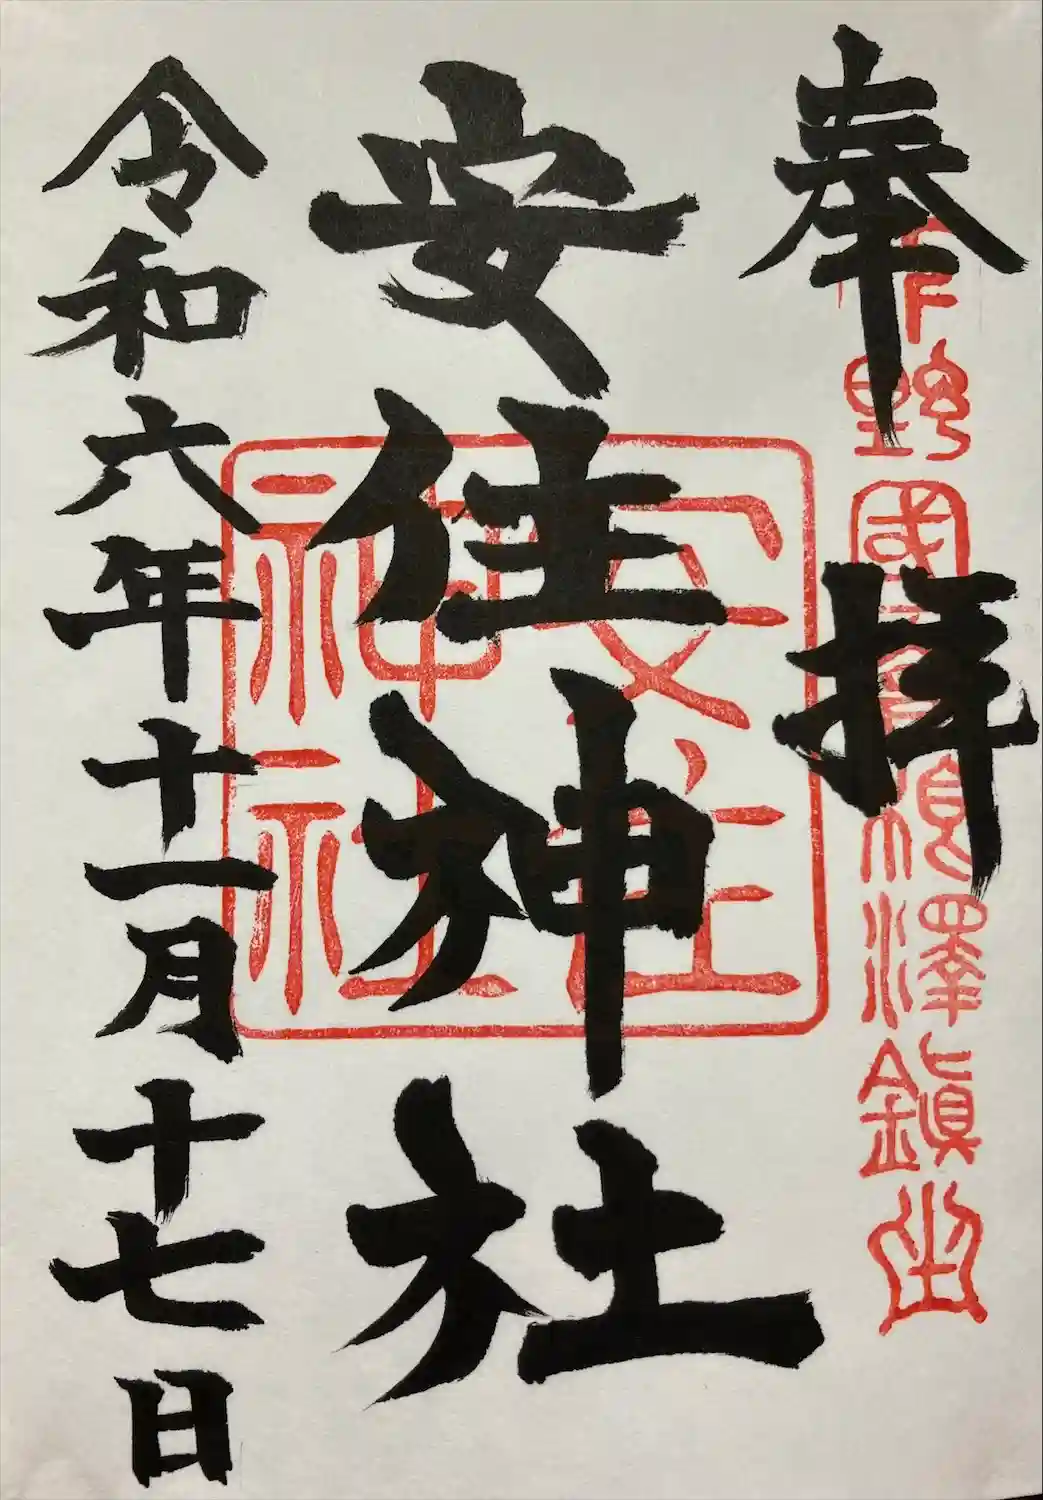 奉拝
下野國高根澤鎭坐
安住神社
安住
神社
令和六年十一月十七日